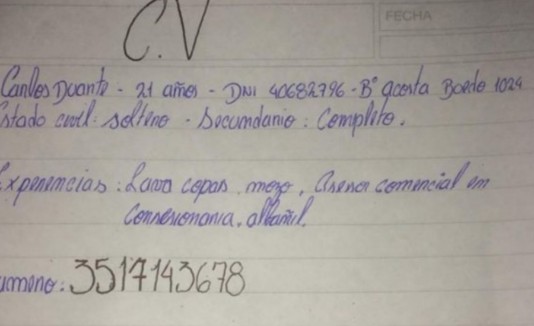 C.V
FECHA
Carlos Duarte - 21 años - DNI 40682796 - B° acosta Boedo 1024
stado civil: soltero - Secundario: Completo.
xperiencias: Lava copas, mozo, Asesor comercial en
Consesionaria, albañil.
umero: 3517143678